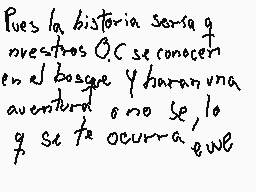 Pues la historia sería q
nuestros O.C se conocen
en el bosque Y haran una
aventura o no se, lo
q se te ocurra ewe